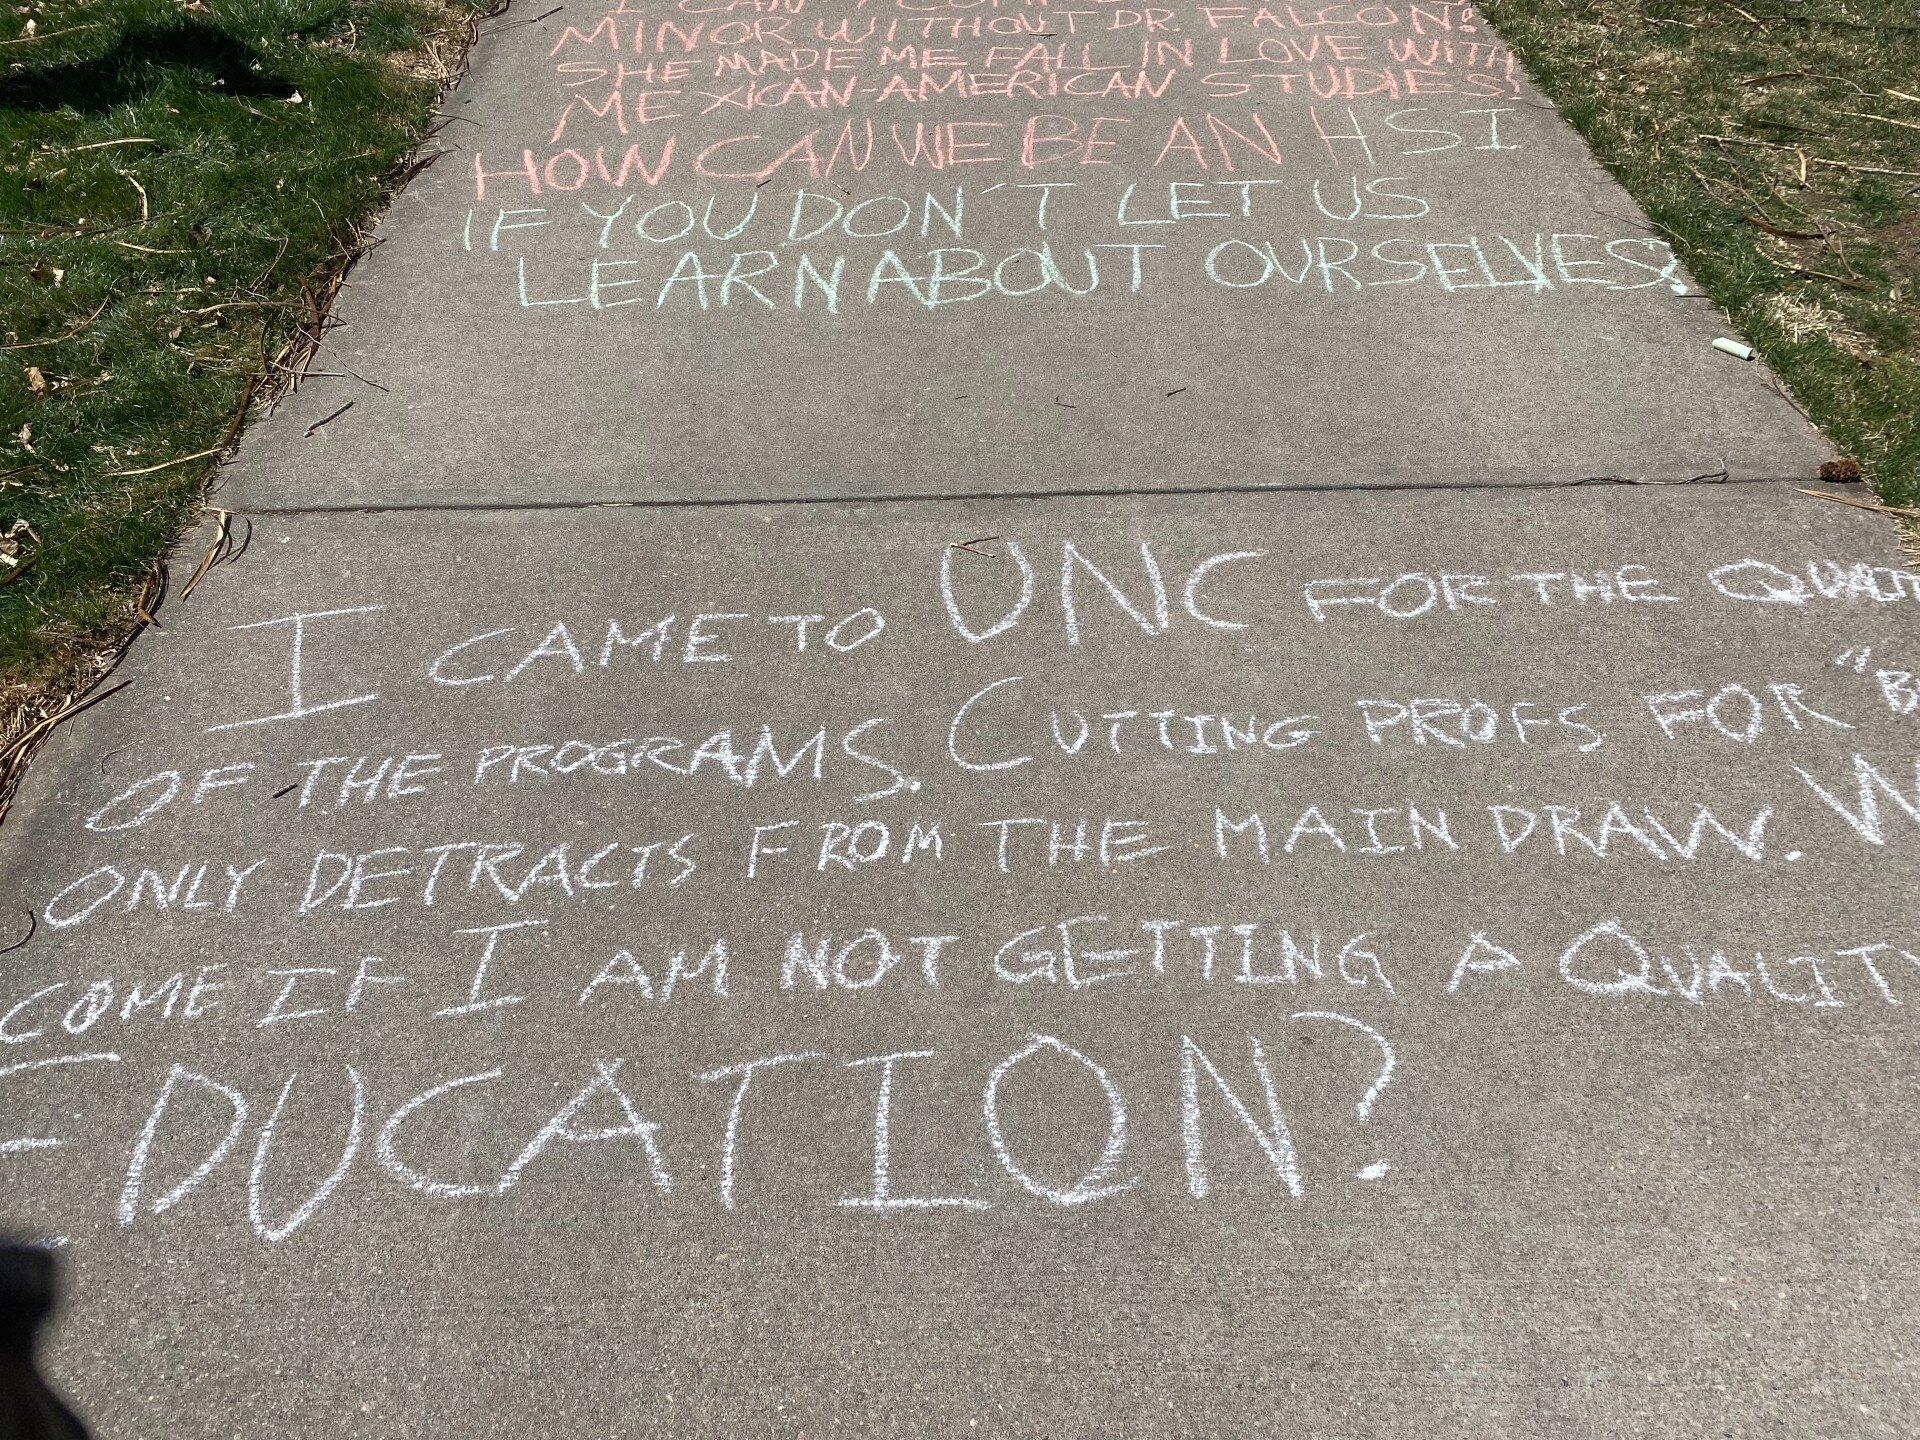 I CAN'T
MINOR WITHOUT DR. FALCON!
SHE MADE ME FALL IN LOVE WITH
MEXICAN-AMERICAN STUDIES!
HOW CAN WE BE AN HSI
IF YOU DON'T LET US
LEARN ABOUT OURSELVES?
I CAME TO UNC FOR THE
OF THE PROGRAMS. CUTTING PROFS FOR
ONLY DETRACTS FROM THE MAIN DRAW.
COME IF I AM NOT GETTING A QUALITY
EDUCATION?